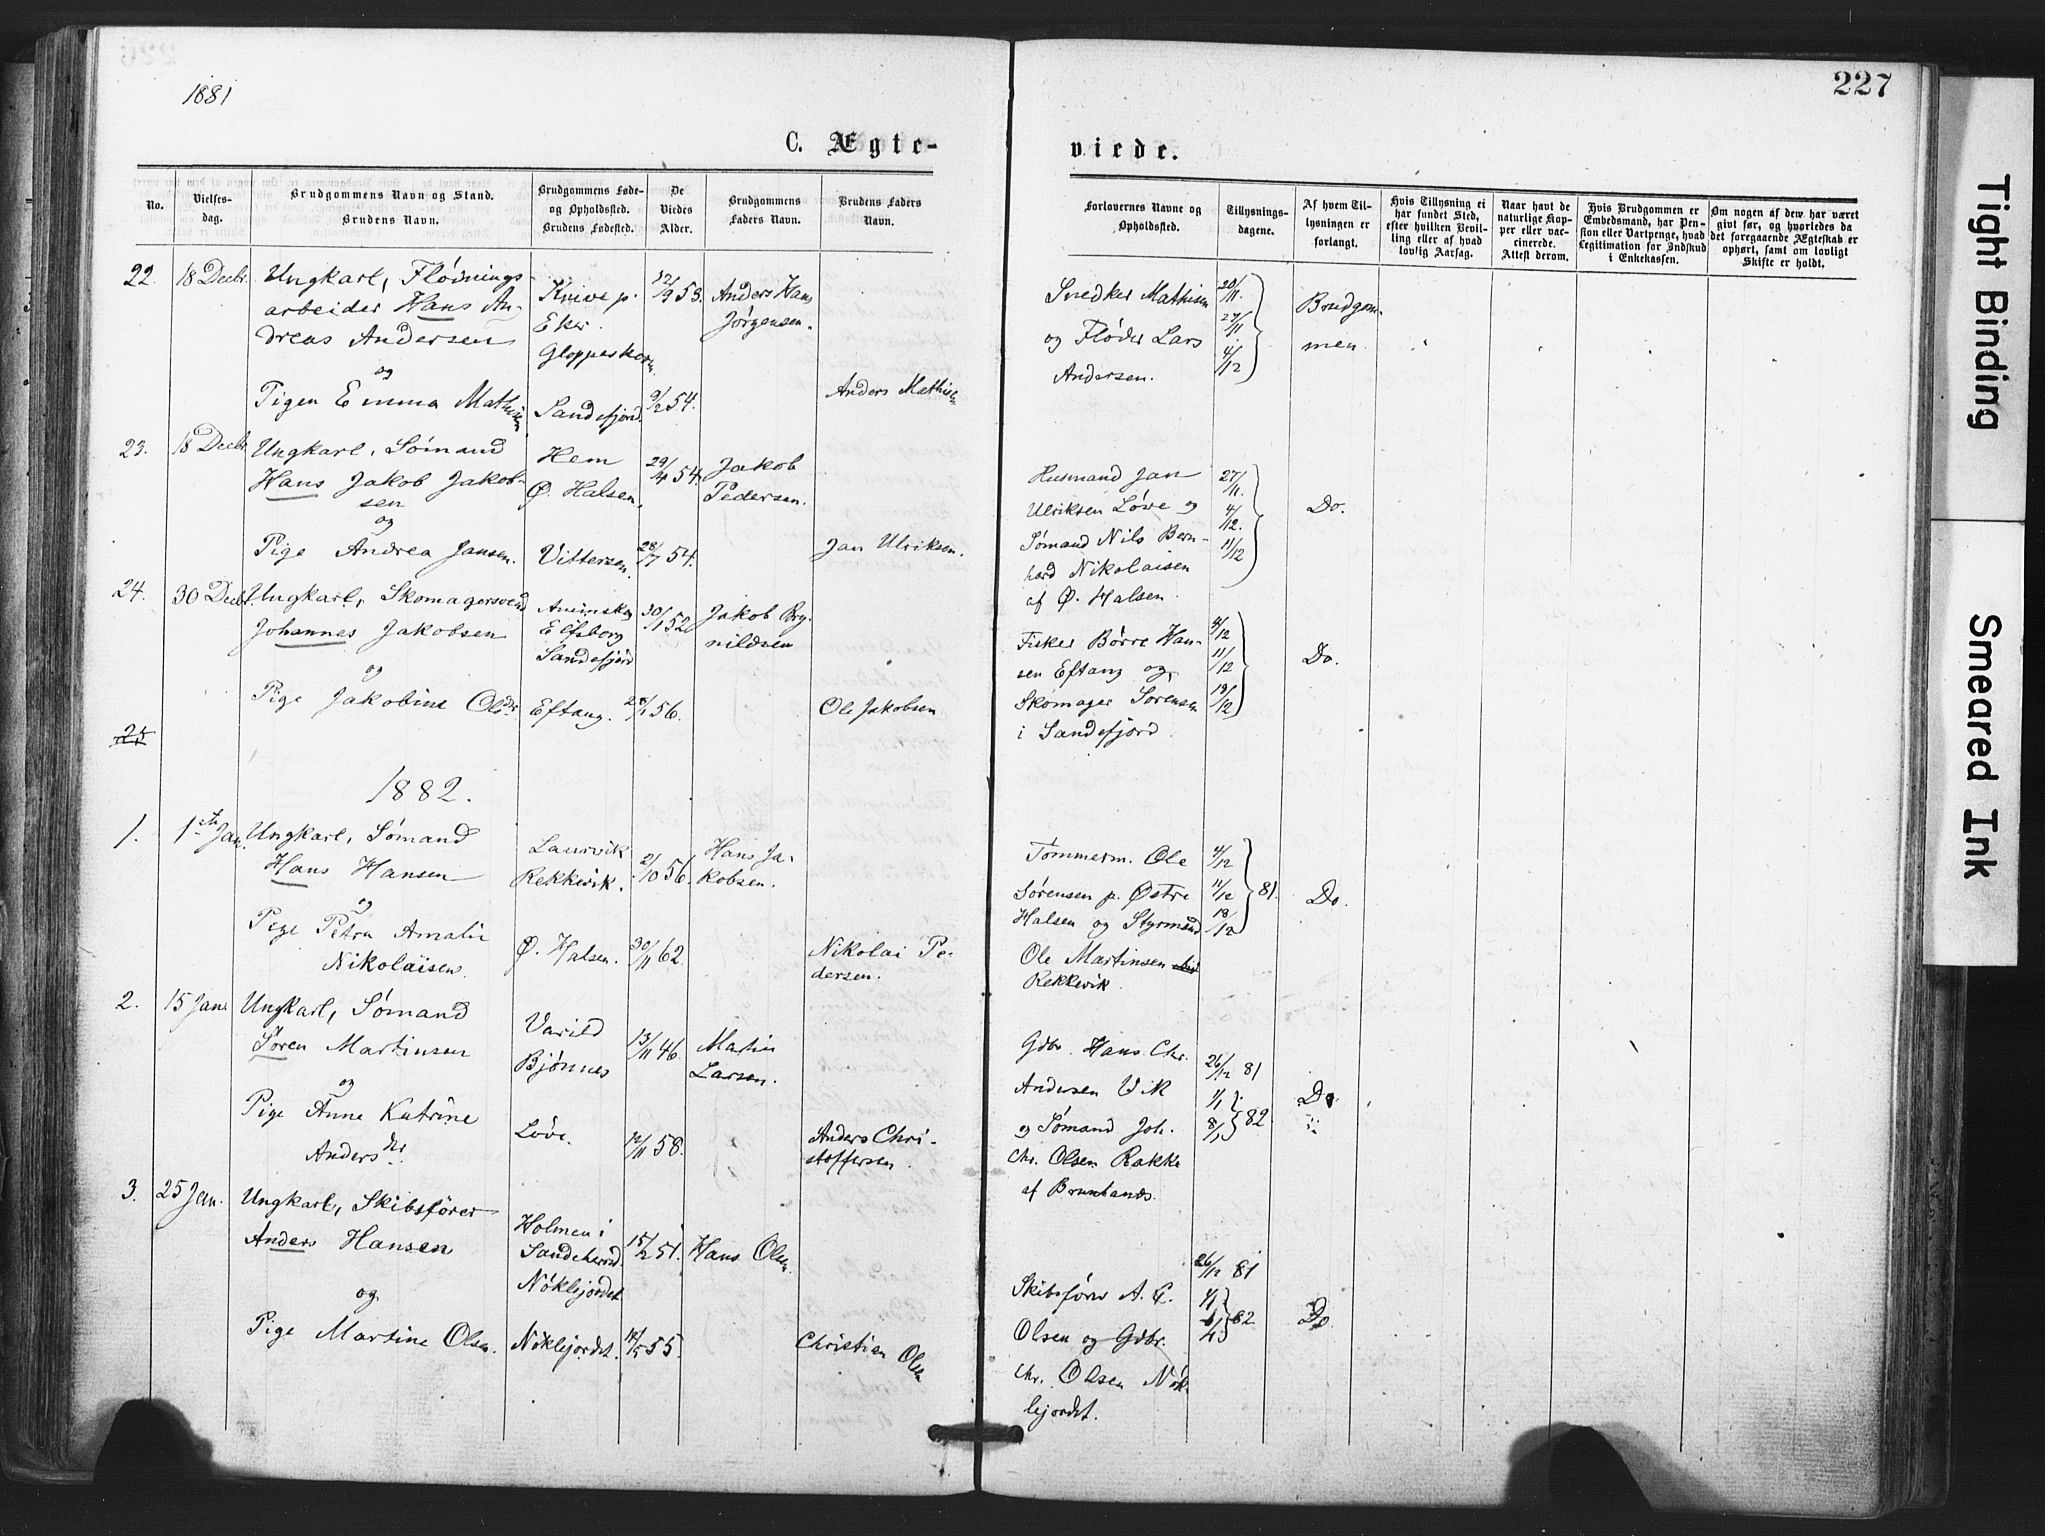 1881
227
C. Ægte-
viede.
No.
Vielses-
dag.
Brudgommens Navn og Stand.
Brudens Navn.
Brudgommens Føde-
og Opholdssted.
Brudens Fødested.
De
Viedes
Alder.
Brudgommens
Faders Navn.
Brudens Faders
Navn.
Forlovernes Navne og
Opholdssted.
Tillysnings-
dagene.
Af hvem Til-
lysningen er
forlangt.
Hvis Tillysning ei
har fundet Sted,
efter hvilken Bevil-
ling eller af hvad
lovlig Aarsag.
Naar havt de
naturlige Kop-
per eller vac-
cinerede.
Attest derom.
Hvis Brudgommen er
Embedsmand, har Pen-
sion eller Vartpenge, hvad
Legitimation for Indskud
i Enkekassen.
Om nogen af dem har været
givt før, og hvorledes da
det foregaaende Ægteskab er
ophørt, samt om lovligt
Skifte er holdt.
22.
18 Decbr.
Ungkarl, Flødnings-
arbeider Hans An-
dreas Andersen
og
Pigen Emma Mathisen
Knive p.
Eker.
Gloppeskoven
Sandefjord.
12/9 53.
9/2 54.
Anders Hans
Jørgensen.
Anders Mathisen
Snedker Mathisen
og Fløder Lars
Andersen.
20/11.
27/11
4/12
Brudgom-
men.
23.
18 Decbr.
Ungkarl, Sømand
Hans Jakob Jakob-
sen
og
Pige Andrea Jansen.
Hem
Ø. Halsen.
Vittersen.
29/4 54.
28/7 54.
Jakob
Pedersen.
Jan Ulriksen.
Husmand Jan
Ulriksen Løve og
Sømand Nils Bern-
hard Nikolaisen
af Ø. Halsen.
27/11.
4/12.
11/12
Do.
24.
30 Decbr.
Ungkarl, Skomagersvend
Johannes Jakobsen
og
Pige Jakobine Olsdr
Elfsborg
Sandefjord
Eftang.
30/1 52
28/1 56.
Jakob Bry-
nildsen
Ole Jakobsen
Fisker Børre Han-
sen Eftang og
Skomager Sørensen
i Sandefjord.
4/12
11/12
18/12
Do.
25
1882.
1.
1ste Jan.
Ungkarl, Sømand
Hans Hansen
og
Pige Petra Amalie
Nikolaisen.
Laurvik
Rekkevik.
Ø. Halsen.
21/10 56.
30/11 62.
Hans Ja-
kobsen.
Nikolai Pe-
dersen.
Tømmerm. Ole
Sørensen p. Østre
Halsen og Styrmand
Ole Martinsen
Rekkevik.
4/12
11/12
18/12
81.
Do.
2.
15 Jan.
Ungkarl, Sømand
Søren Martinsen
og
Pige Anne Katrine
Andersdr.
Varild
Bjønnes
Løve.
13/11 46.
12/11 58.
Martin
Larsen.
Anders Chri-
stoffersen.
Gdbr. Hans Chr.
Andersen Vik
og Sømand Joh.
Chr. Olsen Rakke
af Brunlands.
26/12 81
1/1
8/1 82
Do
3.
25 Jan.
Ungkarl, Skibsfører
Anders Hansen
og
Pige Martine Olsen.
Holmen i
Sandeherred.
Nøklejordet
Nøklejordet.
15/2 51.
14/5 55.
Hans Olsen.
Christian Olsen
Skibsfører A. C.
Olsen og Gdbr.
Chr. Olsen Nøk-
lejordet.
26/12 81
1/1
82
Do
Tight Binding
Smeared Ink